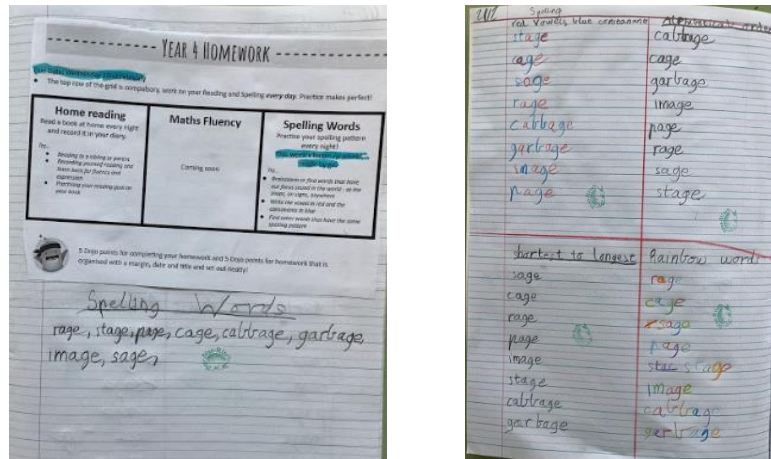 YEAR 4 HOMEWORK
The top row of the grid is compulsory, work on your Reading and Spelling every day. Practice makes perfect!
Home reading
Read a book at home every night
and record it in your diary.
Try...
Reading to a sibling or parent
Recording yourself reading and
listen back for fluency and
expression
Practising your reading goal on
your book
Maths Fluency
Coming soon
Spelling Words
Practice your spelling pattern
every night!
Try...
Brainstorm or find words that have
our focus sound in the world - at the
shops, on signs, anywhere
Write the vowel in red and the
consonants in blue
Find other words that have the same
spelling pattern
5 Dojo points for completing your homework and 5 Dojo points for homework that is
organised with a margin, date and title and set out neatly!
Spelling Words
rage, stage, page, cage, cabbage, garbage,
image, sage,
Spelling
red vowels blue consonant
stage
cage
sage
rage
cabbage
garbage
image
page
cabbage
cage
garbage
image
page
rage
sage
stage
shortest to longest
sage
cage
rage
page
image
stage
cabbage
garbage
Rainbow words
rage
cage
sage
page
stage
image
cabbage
garbage